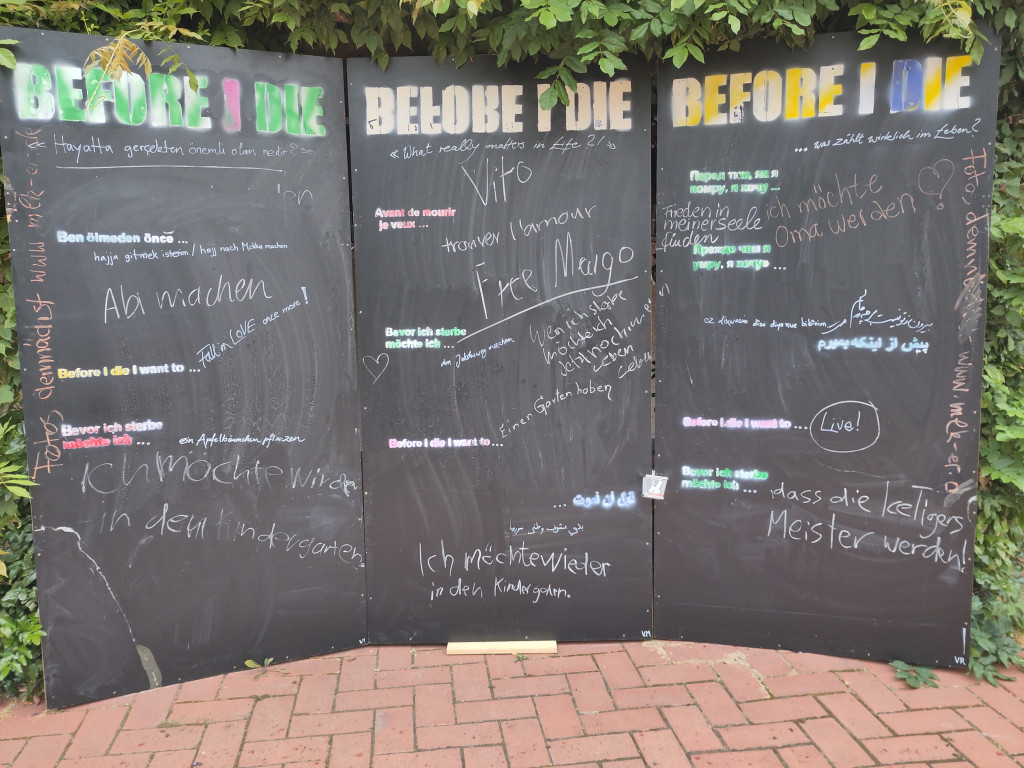 BEFORE I DIE
Hayatta gerçekten önemli olan nedir?
Ben ölmeden önce ...
hajja gitmek isterim / hajj nach Mekka machen
Abi machen
Fall in LOVE once more!
Before I die I want to ...
Bevor ich sterbe
möchte ich ...
ein Apfelbäumchen pflanzen
Ich möchte wieder
in den Kindergarten
Fotos demnächst www.melk-er.de
BEFORE I DIE
« What really matters in Life ?! »
Vito
Avant de mourir
je veux ...
trouver l'amour
Free Maigo
Bevor ich sterbe
möchte ich ...
den Jakobsweg machen
Wenn ich sterbe
möchte ich
Einen Garten haben
Before I die I want to ...
قبل أن أموت ...
Ich möchte wieder
in den Kindergarten.
VM
BEFORE I DIE
... was zählt wirklich im Leben?
Перед тим, як я
помру, я хочу ...
Frieden in
meiner Seele
finden
ich möchte
Oma werden ?
Прежде чем я
умру, я хочу ...
پیش از اینکه بمیرم
Before I die I want to ...
Live!
Bevor ich sterbe
möchte ich ...
dass die IceTigers
Meister werden!
Fotos demnächst www.melk-er.de
VR